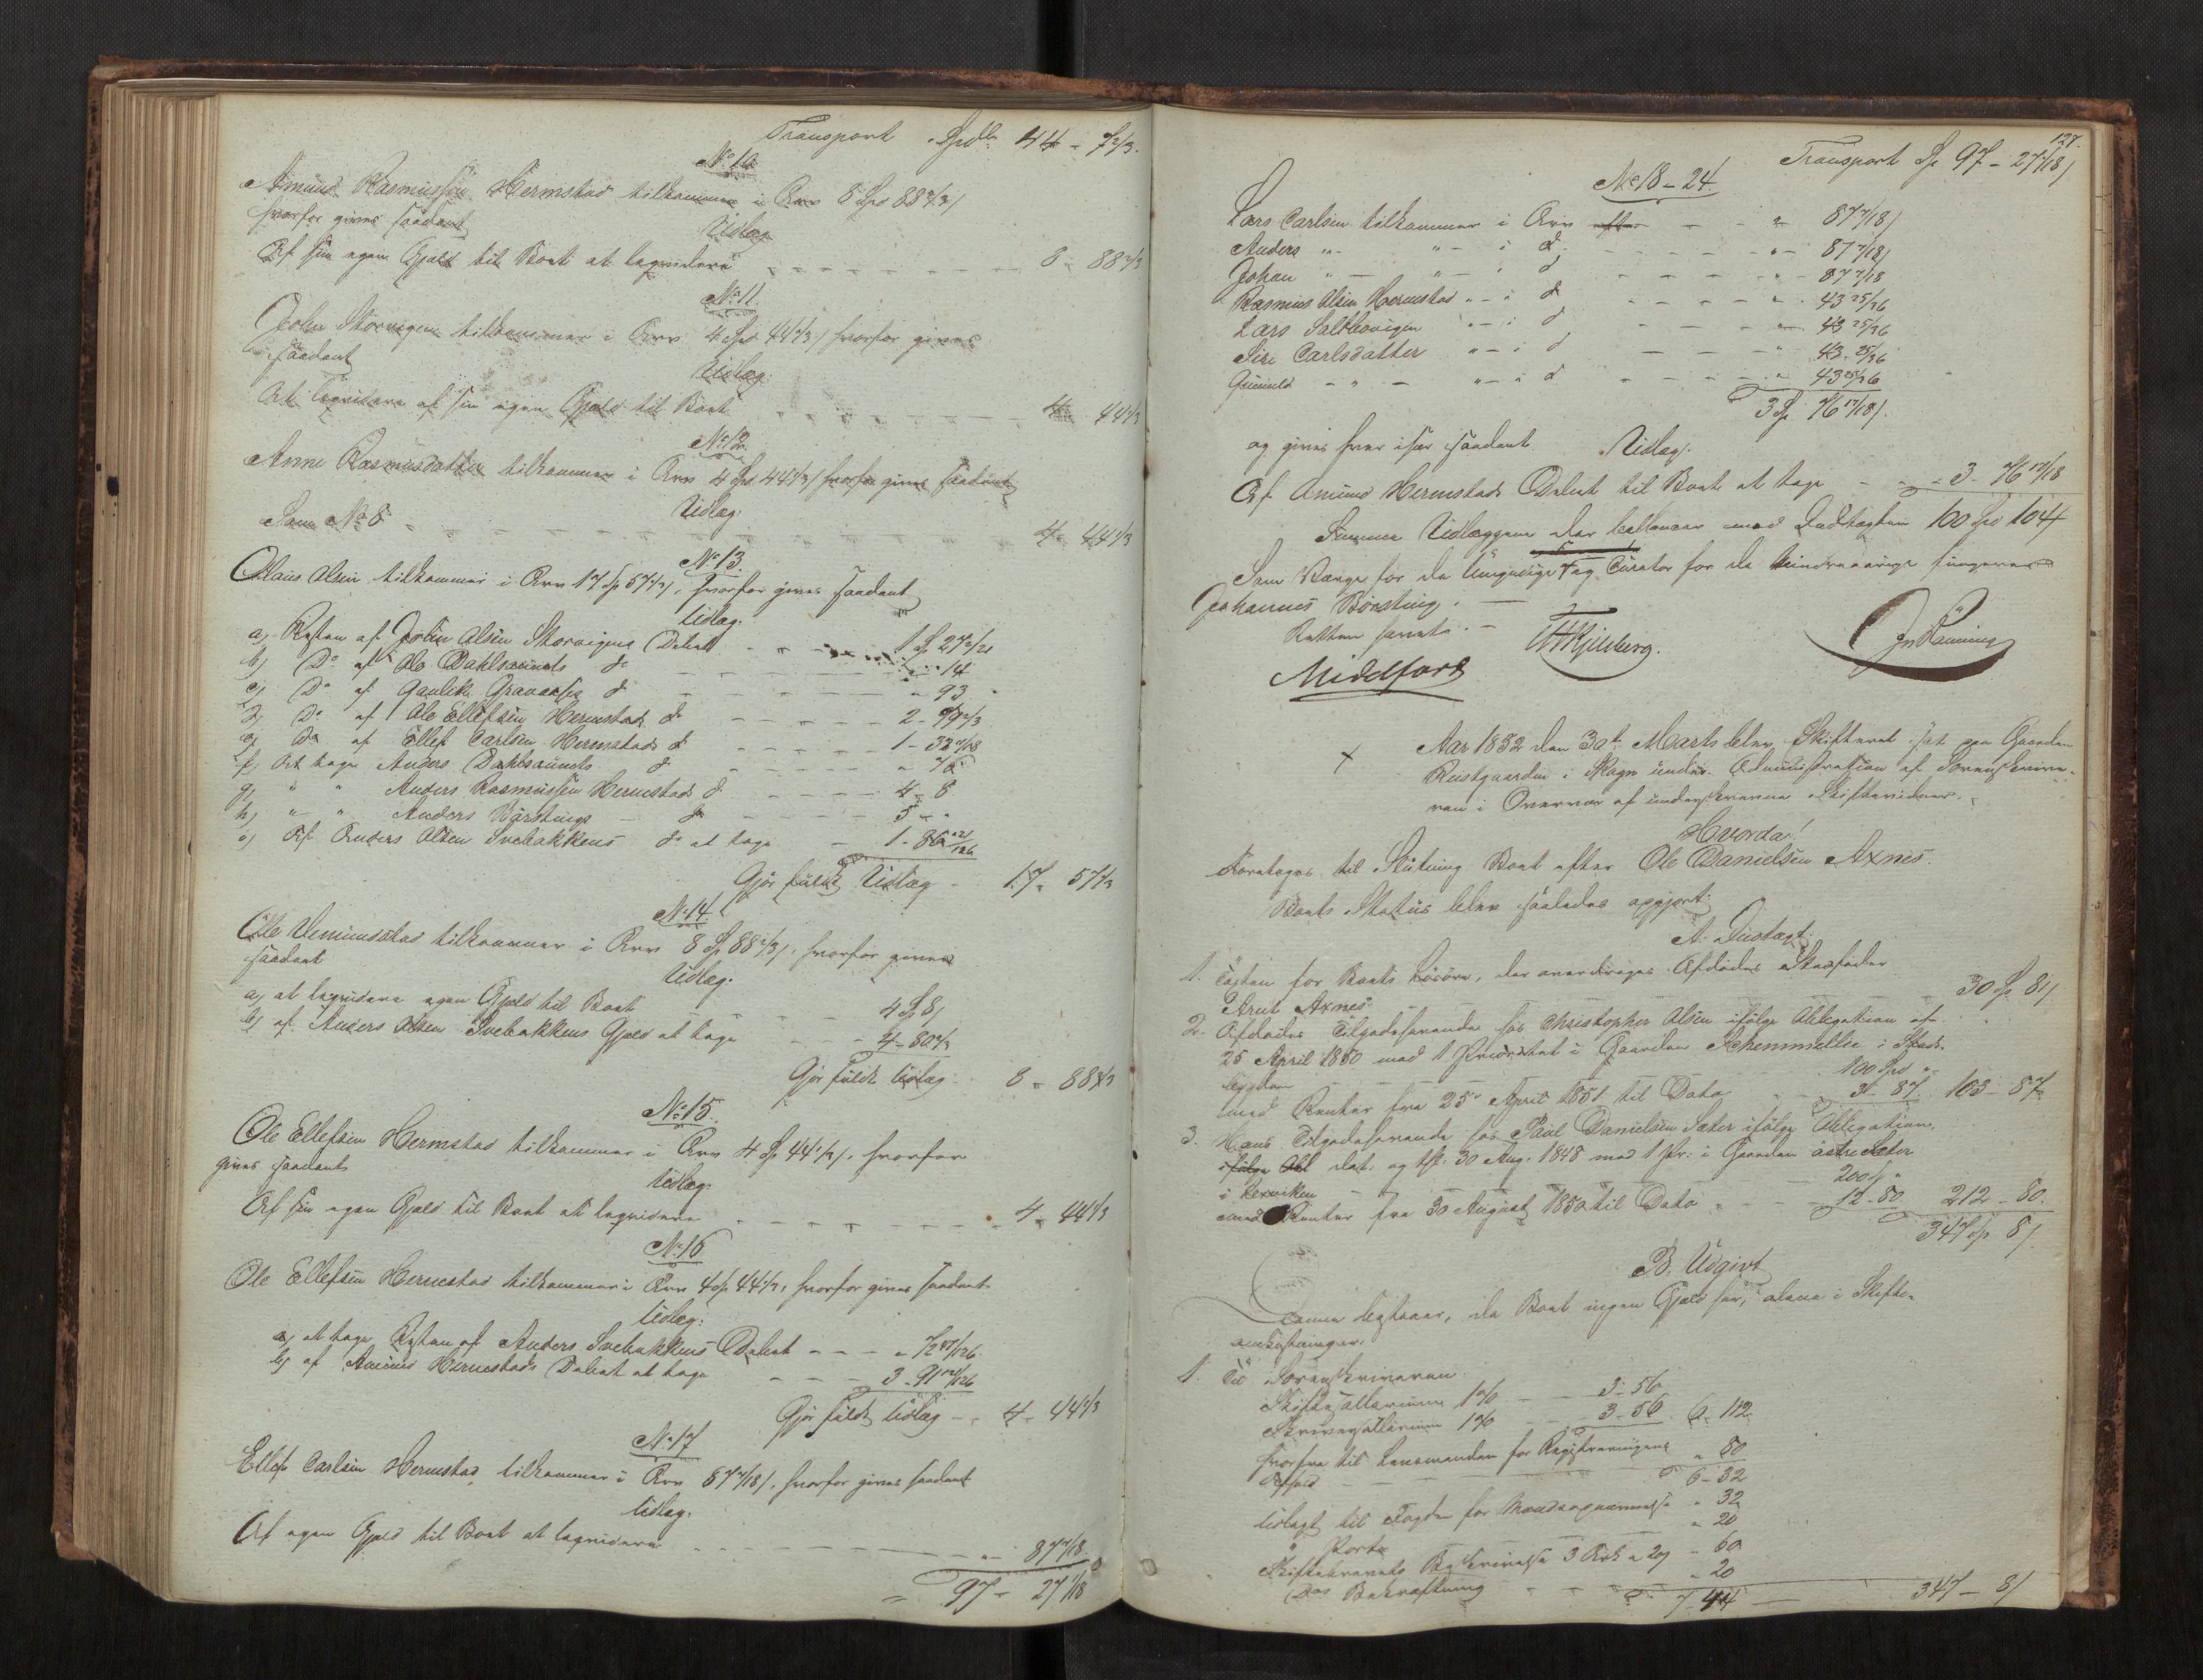 Transport Spdlr 44 - 72/3.
No 10
Amund Rasmussen Hermstad tilkommer i Arv 8 Spd 88 2/3 /
hvorfor gives saadant
Udlæg
Af sin egen Gjæld til Boet at liqvidere 8 - 88 2/3
No 11.
John Storvigen tilkommer i Arv 4 Spd 44 1/3 / hvorfor gives
saadant
Udlæg
At liqvidere af sin egen Gjæld til Boet 4 - 44 1/3
No 12
Anne Rasmusdatter tilkommer i Arv 4 Spd. 44 1/3 / hvorfor gives saadant
Udlæg.
Som No 8 4 - 44 1/3
No 13.
Claus Olsen tilkommer i Arv 17 Sp 57 1/3 /, hvorfor gives saadant
Udlæg.
a, Resten af John Olsen Storvigens Debet 1 Sp 27
b, Do af Ole Dahlsaunets do " - 14
c, Do af Gravaasens do " 93 "
d, Do af Ole Ellefsen Hermstads do 2 -
e, Do af Ellef Carlsen Hermstads do 1 - 32
f, At tage Anders Dahlsaunets do " 76
g, " " Anders Rasmussen Hermstads do 4 - 8
h, " " Anders Børstings do 5 - "
i, Af Anders Olsen Svebakkens do at tage 1 - 86
Gjør fuldt Udlæg 17 - 57 1/3
No 14.
Ole Vemundstad tilkommer i Arv 8 Sp 88 2/3 /, hvorfor gives
saadant
Udlæg.
a, at liqvidere egen Gjæld til Boet 4 Sp 8 /
b, af Anders Olsen Svebakkens Gjæld at tage 4 - 80 2/3
Gjør fuldt Udlæg 8 - 88 2/3
No 15.
Ole Ellefsen Hermstad tilkommer i Arv 4 Sp 44 1/3 /, hvorfor
gives saadant
Udlæg.
Af sin egen Gjæld til Boet at liqvidere 4 - 44 1/3
No 16
Ole Ellefsen Hermstad tilkommer i Arv 4 Sp 44 1/3, hvorfor gives saadant
Udlæg:
a, at tage Resten af Anders Svebakkens Debet
b, af Amund Hermstads Debet at tage 3 - 91
Gjør fuldt Udlæg - 4 - 44 1/3
No 17
Ellef Carlsen Hermstad tilkommer i Arv 87 7/18 /, hvorfor gives saadant
Udlæg.
Af egen Gjæld til Boet at liqvidere " - 87 7/18
97 - 27 1/18
127.
Transport Sp 97 - 27 1/18 /
No 18 - 24
Lars Carlsen tilkommer i Arv efter - - " 87 7/18 /
Anders " - " - i do - " - 87 7/18 /
Johan " - " - i do - " - 87 7/18
Rasmus Olsen Hermstad " - i do - " - 43 25/36
Lars Salthovigen " - i do - " - 43 25/36
Siri Carlsdatter " - i do - " 43 - 25/36
Gunnild - " - " - i do - " 43 25/36
3 Sp 76 17/18 /.
og gives hver især saadant Udlæg.
Af Amund Hermstads Debet til Boet at tage 3 - 76 17/18
Summa Udlæggene der ballancer med Indtægten 100 Spd 104
Som Værge for de Umyndige og Curator for de Mindreaarige fungerer
Johannes Børsting. -
Retten hævet. -
Middelfart
Aar 1852 den 30te Marts blev Skifteret sat paa Gaarden
Reistgaarden i Ragn under Administration af Sorenskrive-
ren i Overvær af underskrevne Skiftevidner.
Hvorda!
Foretoges til Slutning Boet efter Ole Danielsen Axnes.
Boets Status blev saaledes opgjort:
A. Indtægt:
1. Taxten for Boets Løsøre, der overdrages Afdødes Stedfader
Arnt Axnes 30 Sp. 81 /
2. Afdødes Tilgodehavende hos Christopher Olsen ifølge Obligation af
25 April 1850 med 1 Prioritet i Gaarden Schemmellie i Stads-
bygden 100 Spd " -
med Renter fra 25 April 1851 til Dato 3 - 87. 103 - 87
3. Hans Tilgodehavende hos Paul Danielsen Sæter ifølge Obligation
ifølge Obl dat. og 30 Aug. 1848 med 1 Pr: i Gaarden østre Sæter
i Lexviken 200 Sp "
med Renter fra 30 August 1850 til Dato 12 - 80 212 - 80.
347 Sp 8 /
B. Udgivt
Denne bestaaer, da Boet ingen Gjæld har, alene i Skifte-
omkostninger.
1. Til Sorenskriveren
Skiftesallarium 1% 3 - 56
Skriversallarium 1% 3 - 56 6 - 112
hvorfra til Lensmanden for Registreringen " 80
6 - 32
Udlagt til Fogden for " 32
" Porto " 20
Skiftebrevets Beskrivelse 3 Ark a 20 / - 60
Dets Bekræftning " 20
7 - 44 - 347 - 8 /